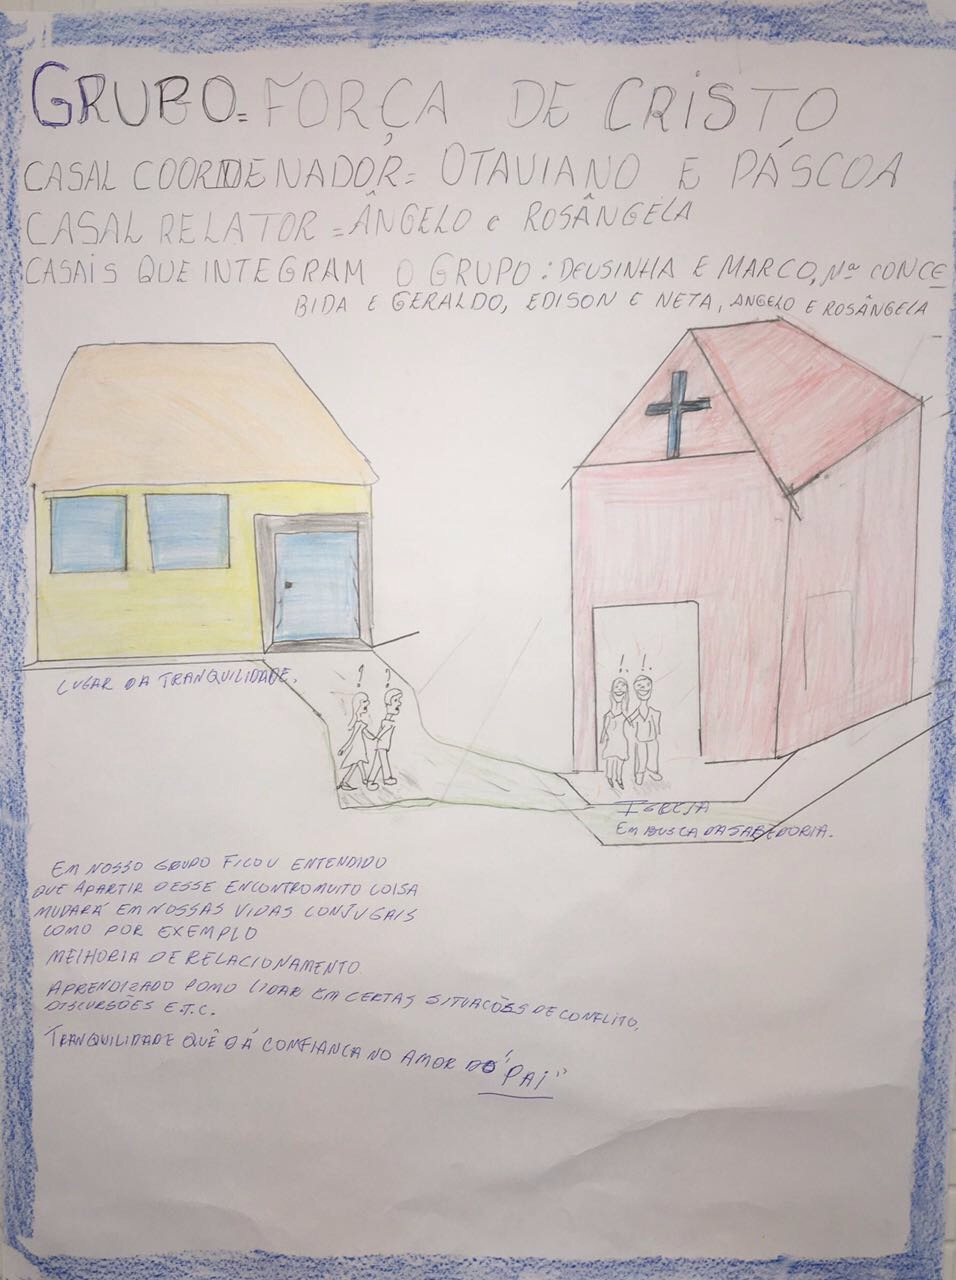 GRUPO = FORÇA DE CRISTO
CASAL COORDENADOR = OTAVIANO E PÁSCOA
CASAL RELATOR = ÂNGELO e ROSÂNGELA
CASAIS QUE INTEGRAM O GRUPO : DEUSINHA E MARCO, Mª CONCE
BIDA E GERALDO, EDISON E NETA, ANGELO E ROSÂNGELA
LUGAR DA TRANQUILIDADE.
? ?
! !
IGREJA
EM BUSCA DA SABEDORIA.
EM NOSSO GRUPO FICOU ENTENDIDO
QUE APARTIR DESSE ENCONTRO MUITO COISA
MUDARÁ EM NOSSAS VIDAS CONJUGAIS
COMO POR EXEMPLO
MELHORIA DE RELACIONAMENTO
APRENDIZADO LIDAR EM CERTAS SITUAÇÕES DE CONFLITO,
DISCURSÕES E.T.C.
TRANQUILIDADE QUÊ DÁ CONFIANCA NO AMOR DO "PAI"